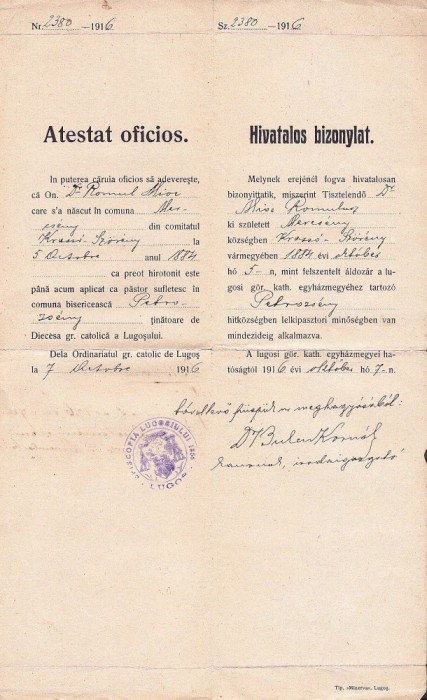 Nr. 2380 —1916
Atestat oficios.
In puterea căruia oficios să adevereşte,
că On. Dr Romul Mioc
care s'a născut în comuna Mer-
csény din comitatul
Krassó-Szörény la
5 Octobre anul 1884
ca preot hirotonit este
până acum aplicat ca păstor sufletesc în
comuna bisericească Petro-
zsény ţinătoare de
Diecesa gr. catolică a Lugoşului.
Dela Ordinariatul gr. catolic de Lugoş
la 7 Octobre 1916
Sz. 2380 —1916
Hivatalos bizonylat.
Melynek erejénél fogva hivatalosan
bizonyittatik, miszerint Tisztelendő Dr
Mioc Romulus
ki született Mercsény
községben Krassó-Szörény
vármegyében 1884 évi október
hó 5-n, mint felszentelt áldozár a lu-
gosi gör. kath. egyházmegyéhez tartozó
Petrozsény
hitközségben lelkipásztori minőségben van
mindezideig alkalmazva.
A lugosi gör. kath. egyházmegyei ha-
tóságtól 1916 évi október hó 7-n.
püspök meghagyásából:
Dr
kanonok, irodaigazgató
EPISCOPIA LUGOSIULUI
LUGOS
Tip. »Minerva«, Lugoş.